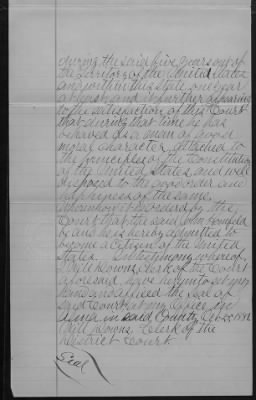 during the said five years out of
the Territory of the United States
and within this State one year
at least and it further appearing
to the satisfaction of this Court
that during that time he has
behaved as a man of good
moral character attached to
the principles of the Constitution
of the United States and well
disposed to the good order and
happiness of the same,
thereupon it is ordered by the
Court that the said John
be and he is hereby admitted to
become a citizen of the United
States. In testimony whereof,
I, Downs, Clerk of the Court
aforesaid, have hereunto set my
hand and affixed the Seal of
said Court at my Office, in
in said County,
Downs Clerk of the
District Court
Seal